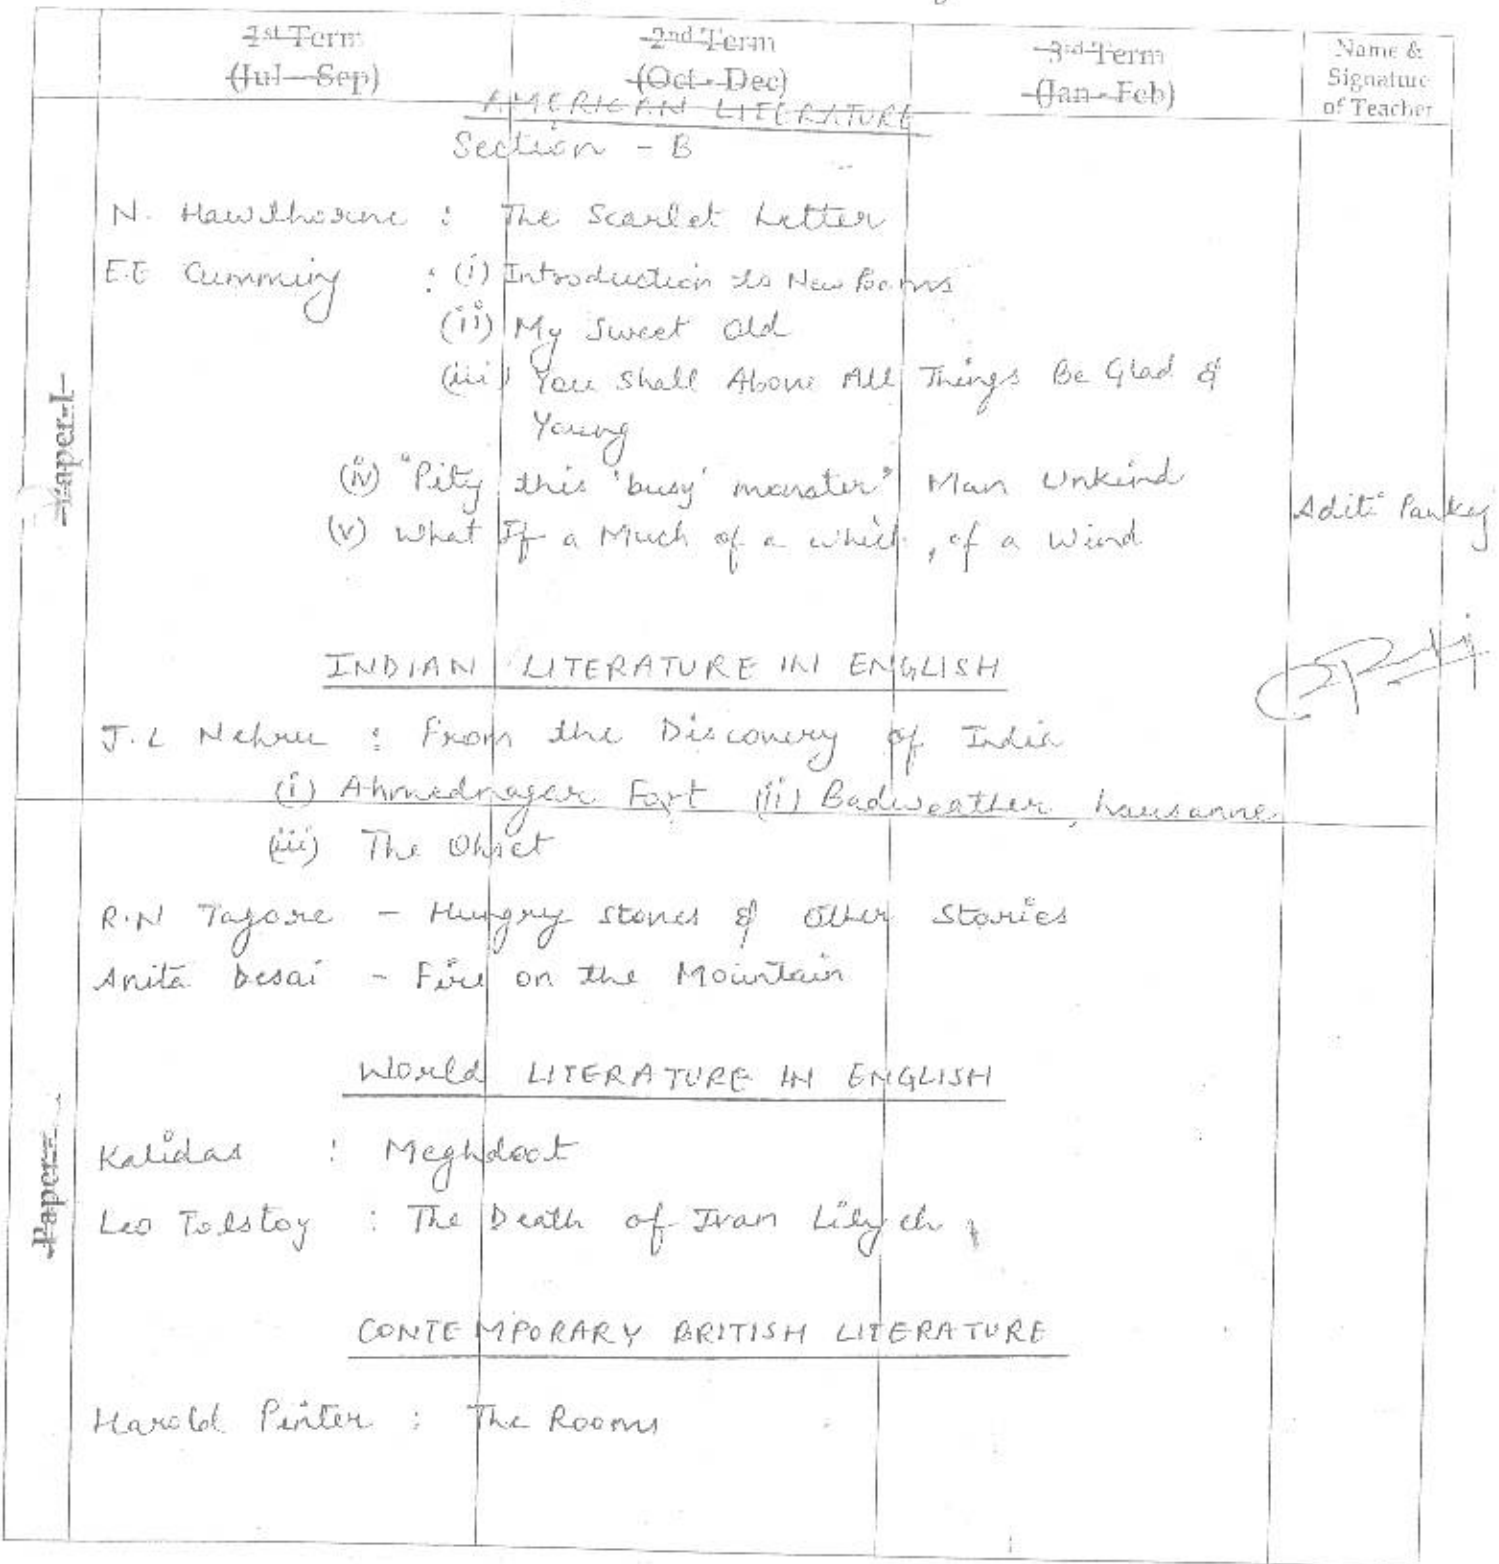 1st Term 2nd Term 3rd Term Name &
(Jul - Sep) (Oct - Dec) (Jan - Feb) Signature
of Teacher
AMERICAN LITERATURE
Section - B
N. Hawthorne : The Scarlet Letter
E.E Cumming : (i) Introduction to New Poems
(ii) My Sweet Old
(iii) You Shall Above All Things Be Glad &
Young
Paper-I
(iv) "Pity this 'busy' monster" Man Unkind
Aditi Pankaj
(v) What If a Much of a which, of a Wind
INDIAN LITERATURE IN ENGLISH
J.L Nehru : From the Discovery of India
(i) Ahmednagar Fort (ii) Badweather, Lausanne
(iii) The
R.N Tagore - Hungry Stones & Other Stories
Anita Desai - Fire on the Mountain
World LITERATURE IN ENGLISH
Kalidas : Meghdoot
Paper
Leo Tolstoy : The Death of Ivan Lilych
CONTEMPORARY BRITISH LITERATURE
Harold Pinter : The Rooms